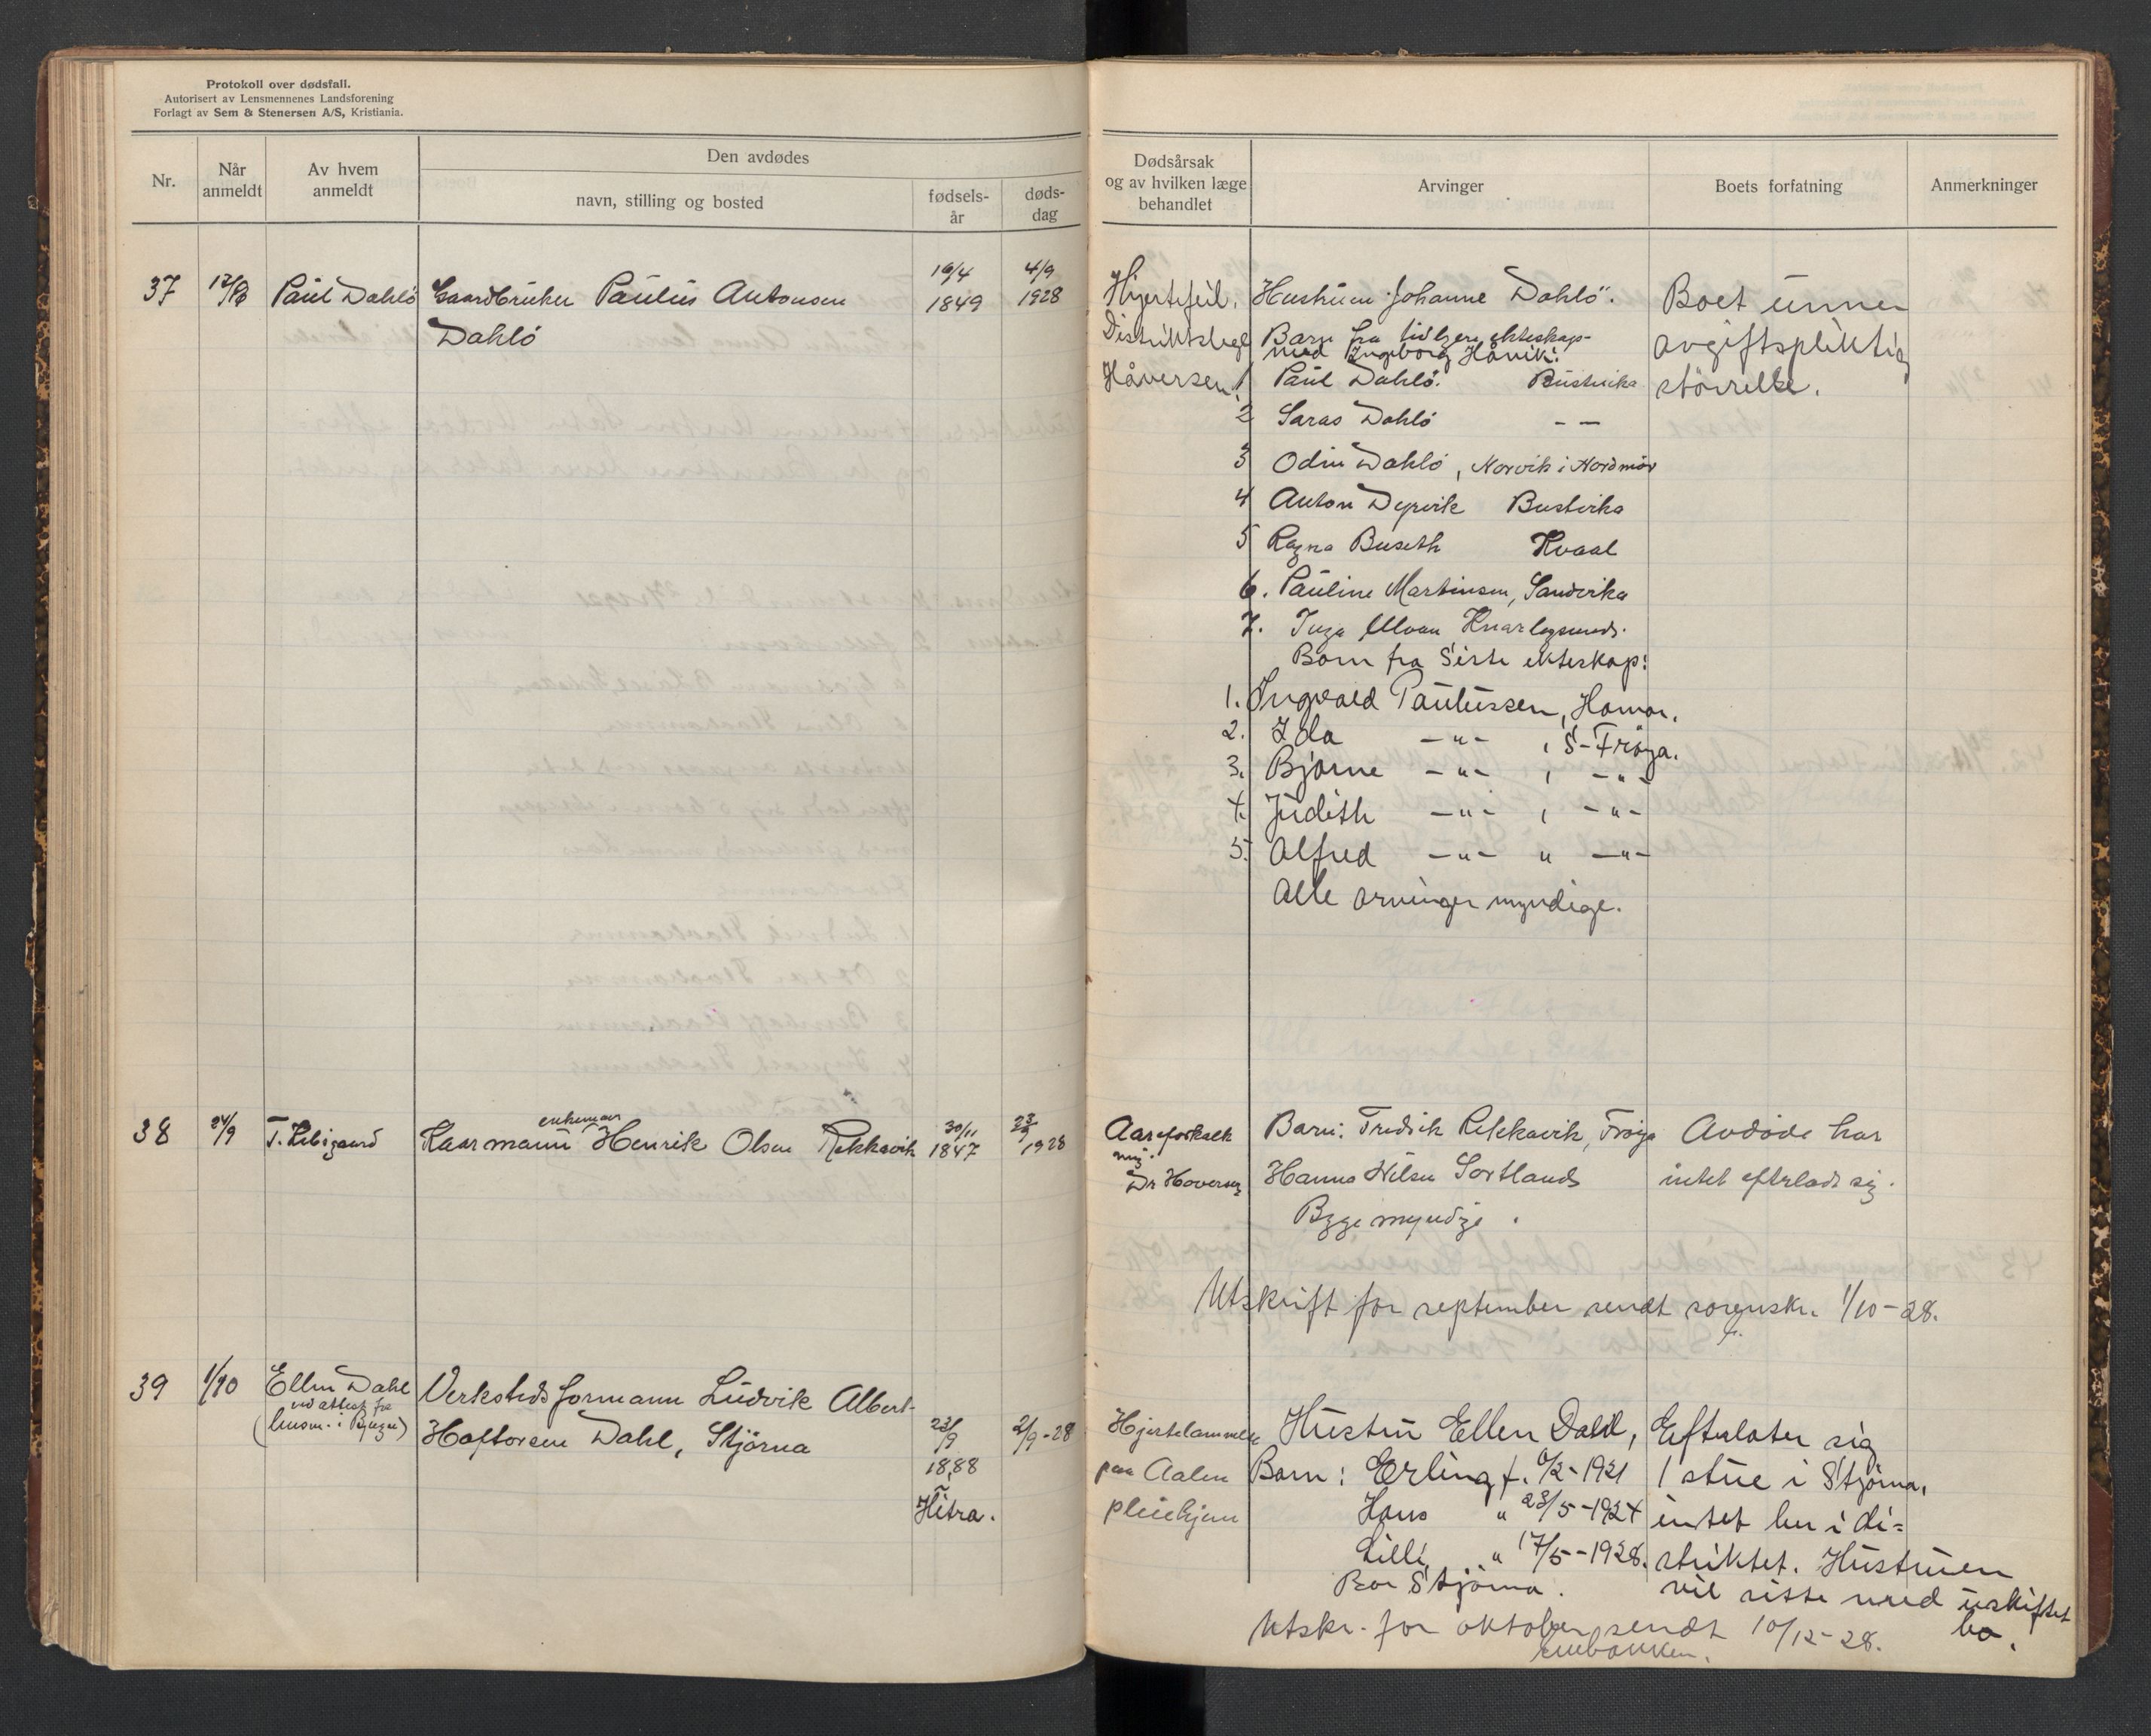 Protokoll over dødsfall.
Autorisert av Lensmennenes Landsforening
Forlagt av Sem & Stenersen A/S, Kristiania.
Nr.
Når anmeldt
Av hvem anmeldt
Den avdødes
navn, stilling og bosted
fødsels-år
døds-dag
Dødsårsak og av hvilken læge behandlet
Arvinger
Boets forfatning
Anmerkninger
37 Paul Dahlö Gaardbruker Paulus Antonsen
Dahlö
16/4 1849
4/9 1928
Hjertefeil.
Distriktslege
Håversen.
Hustruen Johanne Dahlö.
Barn fra tidligere ekteskap
med Ingeborg Hånik:
1 Paul Dahlö. Bustvika
2 Saras Dahlö - -
3 Odin Dahlö, Korvik i Nordmör
4 Anton Dyrvik Bustvika
5 Ragna Buseth Kvaal
6. Pauline Martinsen, Sandvika
7. Inga Ulvan Knarlagsund.
Barn fra siste ekteskap:
1. Ingvald Paulussen, Hamar.
2. Ida -"- , S-Fröya.
3. Bjarne -"- , -"-
4. Judith -"- , -"-
5. Alfred -"- " -"-
Alle arvinger myndige.
Boet under
avgiftspliktig
störrelse.
38 24/9 Kaarmann enkemann Henrik Olsen Rekkavik
30/11 1847
23/9 1928
Aareforkalkning.
Dr Hoversen
Barn: Fredrik Rekkavik, Fröya
Hanna Nilsen Sortland
Begge myndige.
Avdöde har
intet efterladt sig.
Utskrift for september sendt sorenskr. 1/10-28.
39 1/10 Ellen Dahl
ved attest fra
(lensm. i Bjugn)
Verkstedsformann Ludvik Albert
Haftorsen Dahl, Stjörna
23/9
1888
Hitra.
2/9-28
Hjertelammelse
paa Aalen
pleiehjem
Hustru Ellen Dahl,
Barn: Erling f. 6/2-1921
Hans " 23/5-1924
Lilli " 17/5-1928.
Bor Stjörna.
Efterlater sig
1 stue i Stjörna,
intet her i di=
striktet. Hustruen
vil sitte med uskiftet
bo.
Utskr. for oktober sendt 10/12-28.